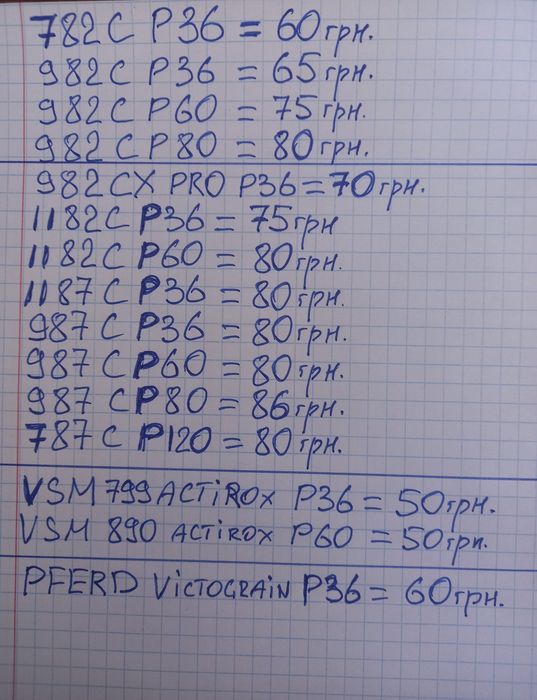 782C P36 = 60грн.
982C P36 = 65грн.
982C P60 = 75грн.
982C P80 = 80грн.
982CX PRO P36 = 70грн.
1182C P36 = 75грн
1182C P60 = 80грн.
1187C P36 = 80грн.
987C P36 = 80грн.
987C P60 = 80грн.
987C P80 = 86грн.
787C P120 = 80грн.
VSM 799 ACTiROX P36 = 50грн.
VSM 890 ACTiROX P60 = 50грп.
PFERD VICTOGRAIN P36 = 60грн.